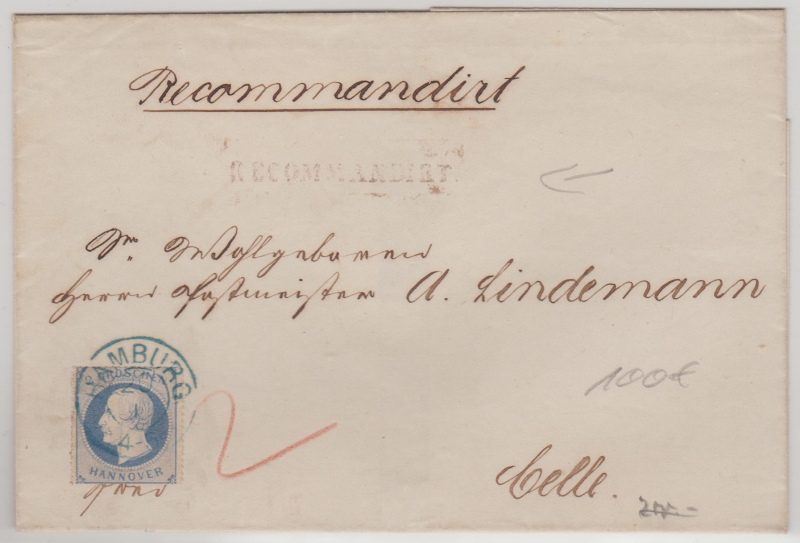 Recommandirt
RECOMMANDIRT.
Sr. Wohlgeboren
Herrn Postmeister A. Lindemann
HAMBURG
GROSCHEN
4-
HANNOVER
2
100€
Celle.